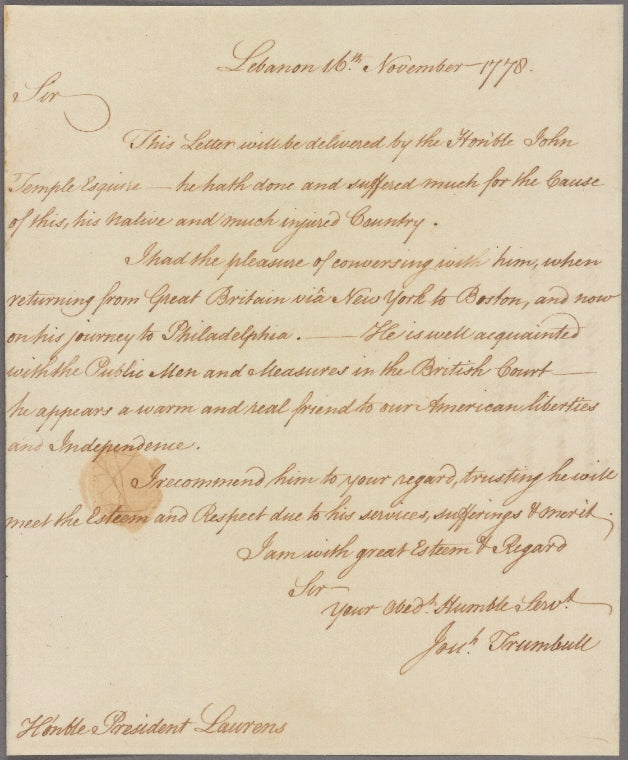 Lebanon 16.th November 1778.
Sir
This Letter will be delivered by the Honble John
Temple Esquire — he hath done and suffered much for the Cause
of this, his native and much injured Country.
I had the pleasure of conversing with him, when
returning from Great Britain viâ New York to Boston, and now
on his journey to Philadelphia. — He is well acquainted
with the Public Men and Measures in the British Court —
he appears a warm and real friend to our American liberties
and Independence.
I recommend him to your regard, trusting he will
meet the Esteem and Respect due to his services, sufferings & merit.
I am with great Esteem & Regard
Sir
Your Obed.t Humble Serv.t
Jon.th Trumbull
Honble President Laurens